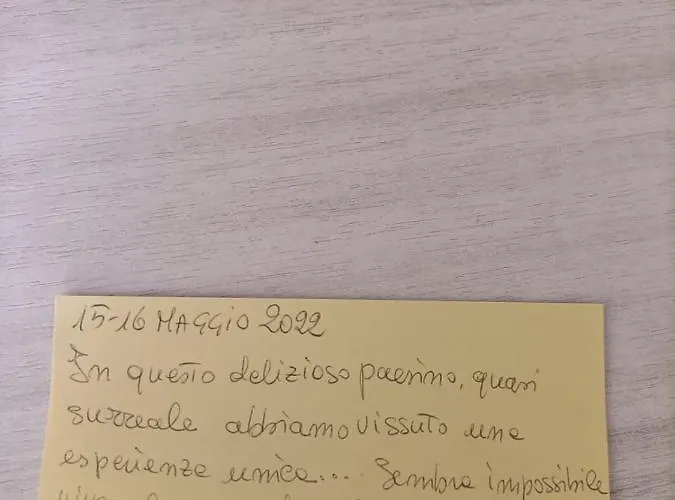 15-16 MAGGIO 2022
In questo delizioso paesino, quasi
surreale abbiamo vissuto una
esperienza unica... Sembra impossibile